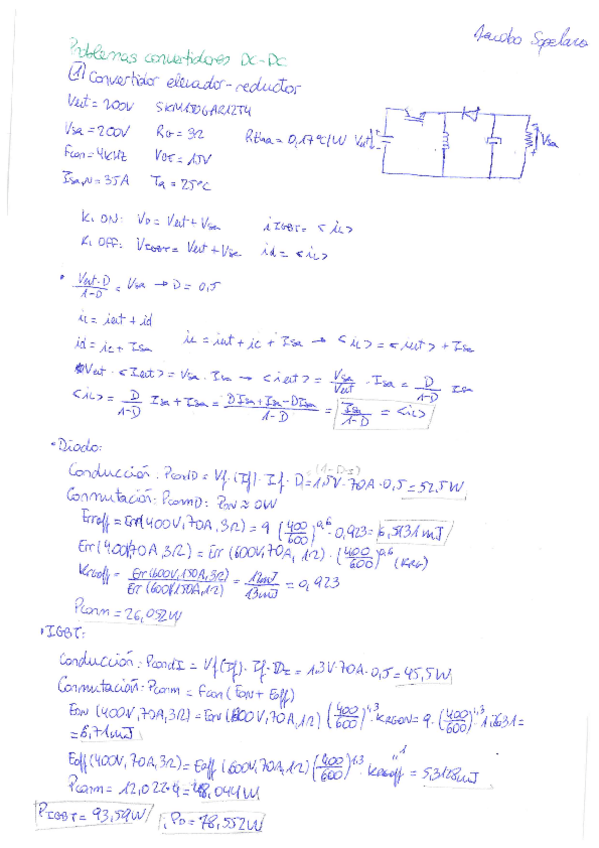 Jacobo Sopelana
Problemas convertidores DC-DC
① Convertidor elevador-reductor
Vent = 200V SKM150GAR12T4
Vsa = 200V RG = 3Ω Rthha = 0,17ºC/W Vent Vsa
Fcon = 4kHz VGE = 15V
Isa,N = 35A Ta = 25ºC
K1 ON: VD = Vent + Vsa iIGBT = <iL>
K1 OFF: VIGBT = Vent + Vsa id = <iL>
• Vent·D / 1-D = Vsa → D = 0,5
iL = ient + id
id = ic + Isa iL = ient + ic + Isa → <iL> = <ient> + Isa
Vent · <Ient> = Vsa · Isa → <ient> = Vsa/Vent · Isa = D/1-D Isa
<iL> = D/1-D Isa + Isa = DIsa + Isa - DIsa / 1-D = Isa/1-D = <iL>
• Diodo:
Conducción: PcondD = Vf(If) · If · D = 1,5V · 70A · 0,5 = 52,5W
Conmutación: PcomD: PON ≈ 0W
Erroff = Err(400V, 70A, 3Ω) = 9 (400/600)^0,6 · 0,923 = 6,5131mJ
Err(400, 70A, 3Ω) = Err (600V, 70A, 1Ω) · (400/600)^0,6 (KRG)
KRGoff = Err(600V, 150A, 3Ω) / Err(600V, 150A, 1Ω) = 12mJ / 13mJ = 0,923
Pcom = 26,052W
• IGBT:
Conducción: PcondI = Vf(If) · If · DI = 1,3V · 70A · 0,5 = 45,5W
Conmutación: Pcom = Fcon (Eon + Eoff)
Eon (400V, 70A, 3Ω) = Eon (600V, 70A, 1Ω) (400/600)^1,3 · KRGON = 9 · (400/600)^1,3 · 1,2631 =
= 6,71mJ
Eoff (400V, 70A, 3Ω) = Eoff (600V, 70A, 1Ω) (400/600)^1,3 · KRGoff = 5,3128mJ
1
Pcom = 12,022·4 = 48,044W
PIGBT = 93,59W PD = 78,552W